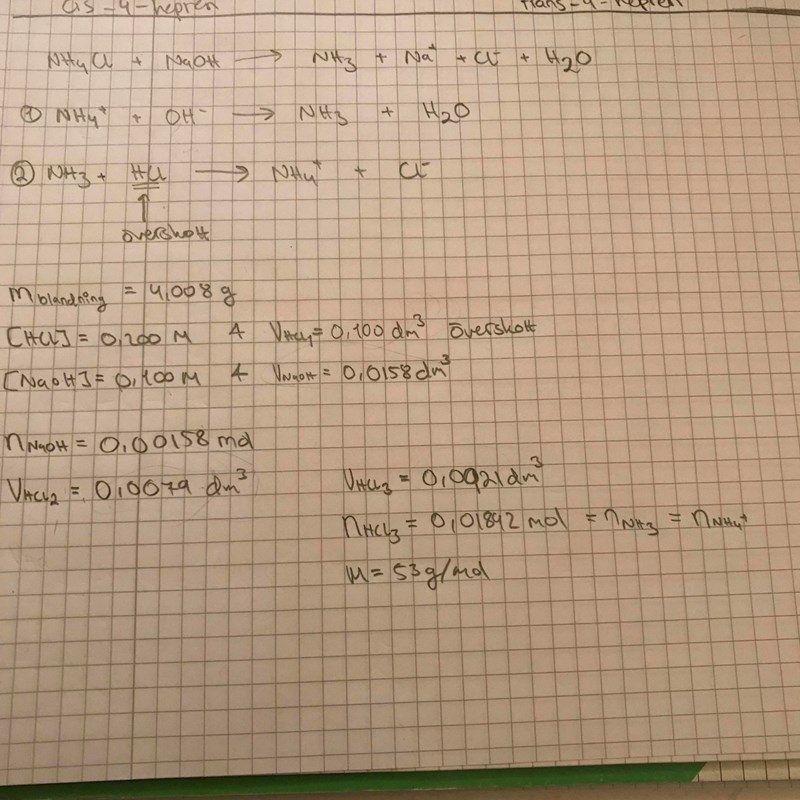 cis-4-hepten trans-4-hepten
NH4Cl + NaOH → NH3 + Na⁺ + Cl⁻ + H2O
① NH4⁺ + OH⁻ → NH3 + H2O
② NH3 + HCl → NH4⁺ + Cl⁻
↑
överskott
m blandning = 4,008 g
[HCl] = 0,200 M & VHCl1 = 0,100 dm³ överskott
[NaOH] = 0,100 M & VNaOH = 0,0158 dm³
nNaOH = 0,00158 mol
VHCl2 = 0,0079 dm³ VHCl3 = 0,0921 dm³
nHCl3 = 0,01842 mol = nNH3 = nNH4⁺
M = 53 g/mol